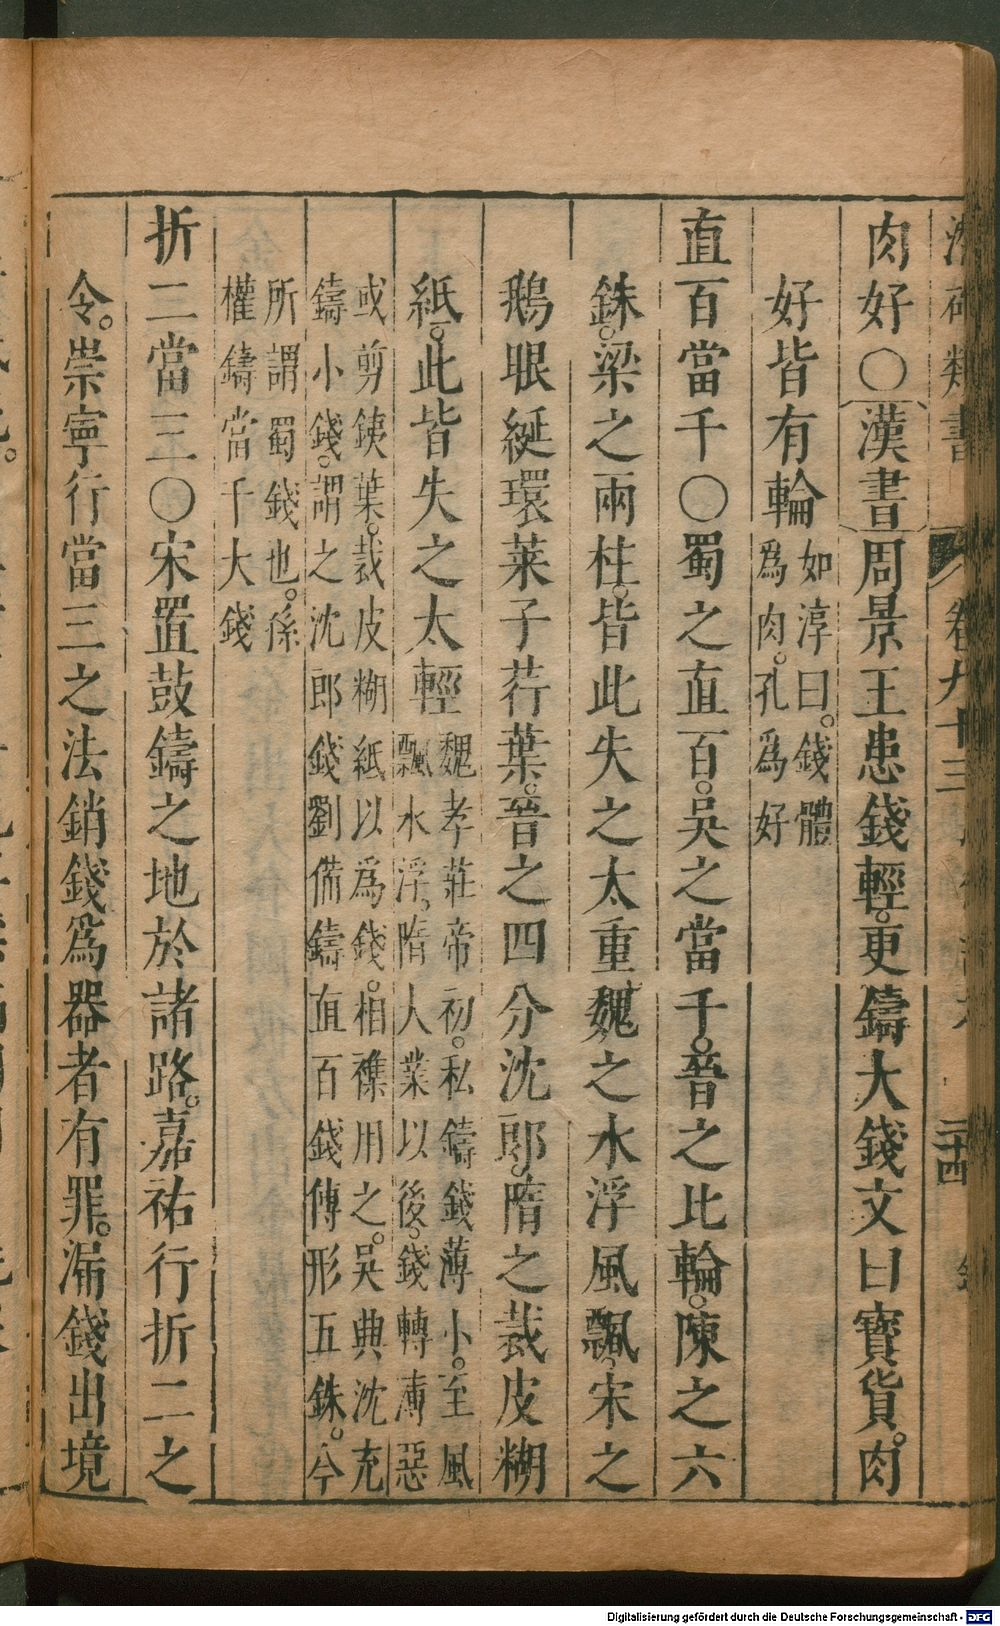 卷九十三
二十四
肉好〇漢書周景王患錢輕。更鑄大錢文曰寶貨。肉
好皆有輪如淳曰。錢體爲肉。孔爲好
直百當千〇蜀之直百。吳之當千。晉之比輪。陳之六
銖。梁之兩柱。皆此失之太重魏之水浮風飄宋之
鵝眼綖環萊子荇葉。晉之四分沈郎。隋之裁皮糊
紙。此皆失之太輕魏孝莊帝初。私鑄錢薄小。至風飄水浮。隋人業以後。錢轉薄惡
或剪鐵葉。裁皮糊紙以爲錢。相襍用之。吳興沈充
鑄小錢。謂之沈郎錢劉備鑄直百錢傳形五銖。今
所謂蜀錢也。孫
權鑄當千大錢
折二當三〇宋置鼓鑄之地於諸路。嘉祐行折二之
令。崇寧行當三之法銷錢爲器者有罪。漏錢出境
Digitalisierung gefördert durch die Deutsche Forschungsgemeinschaft - DFG